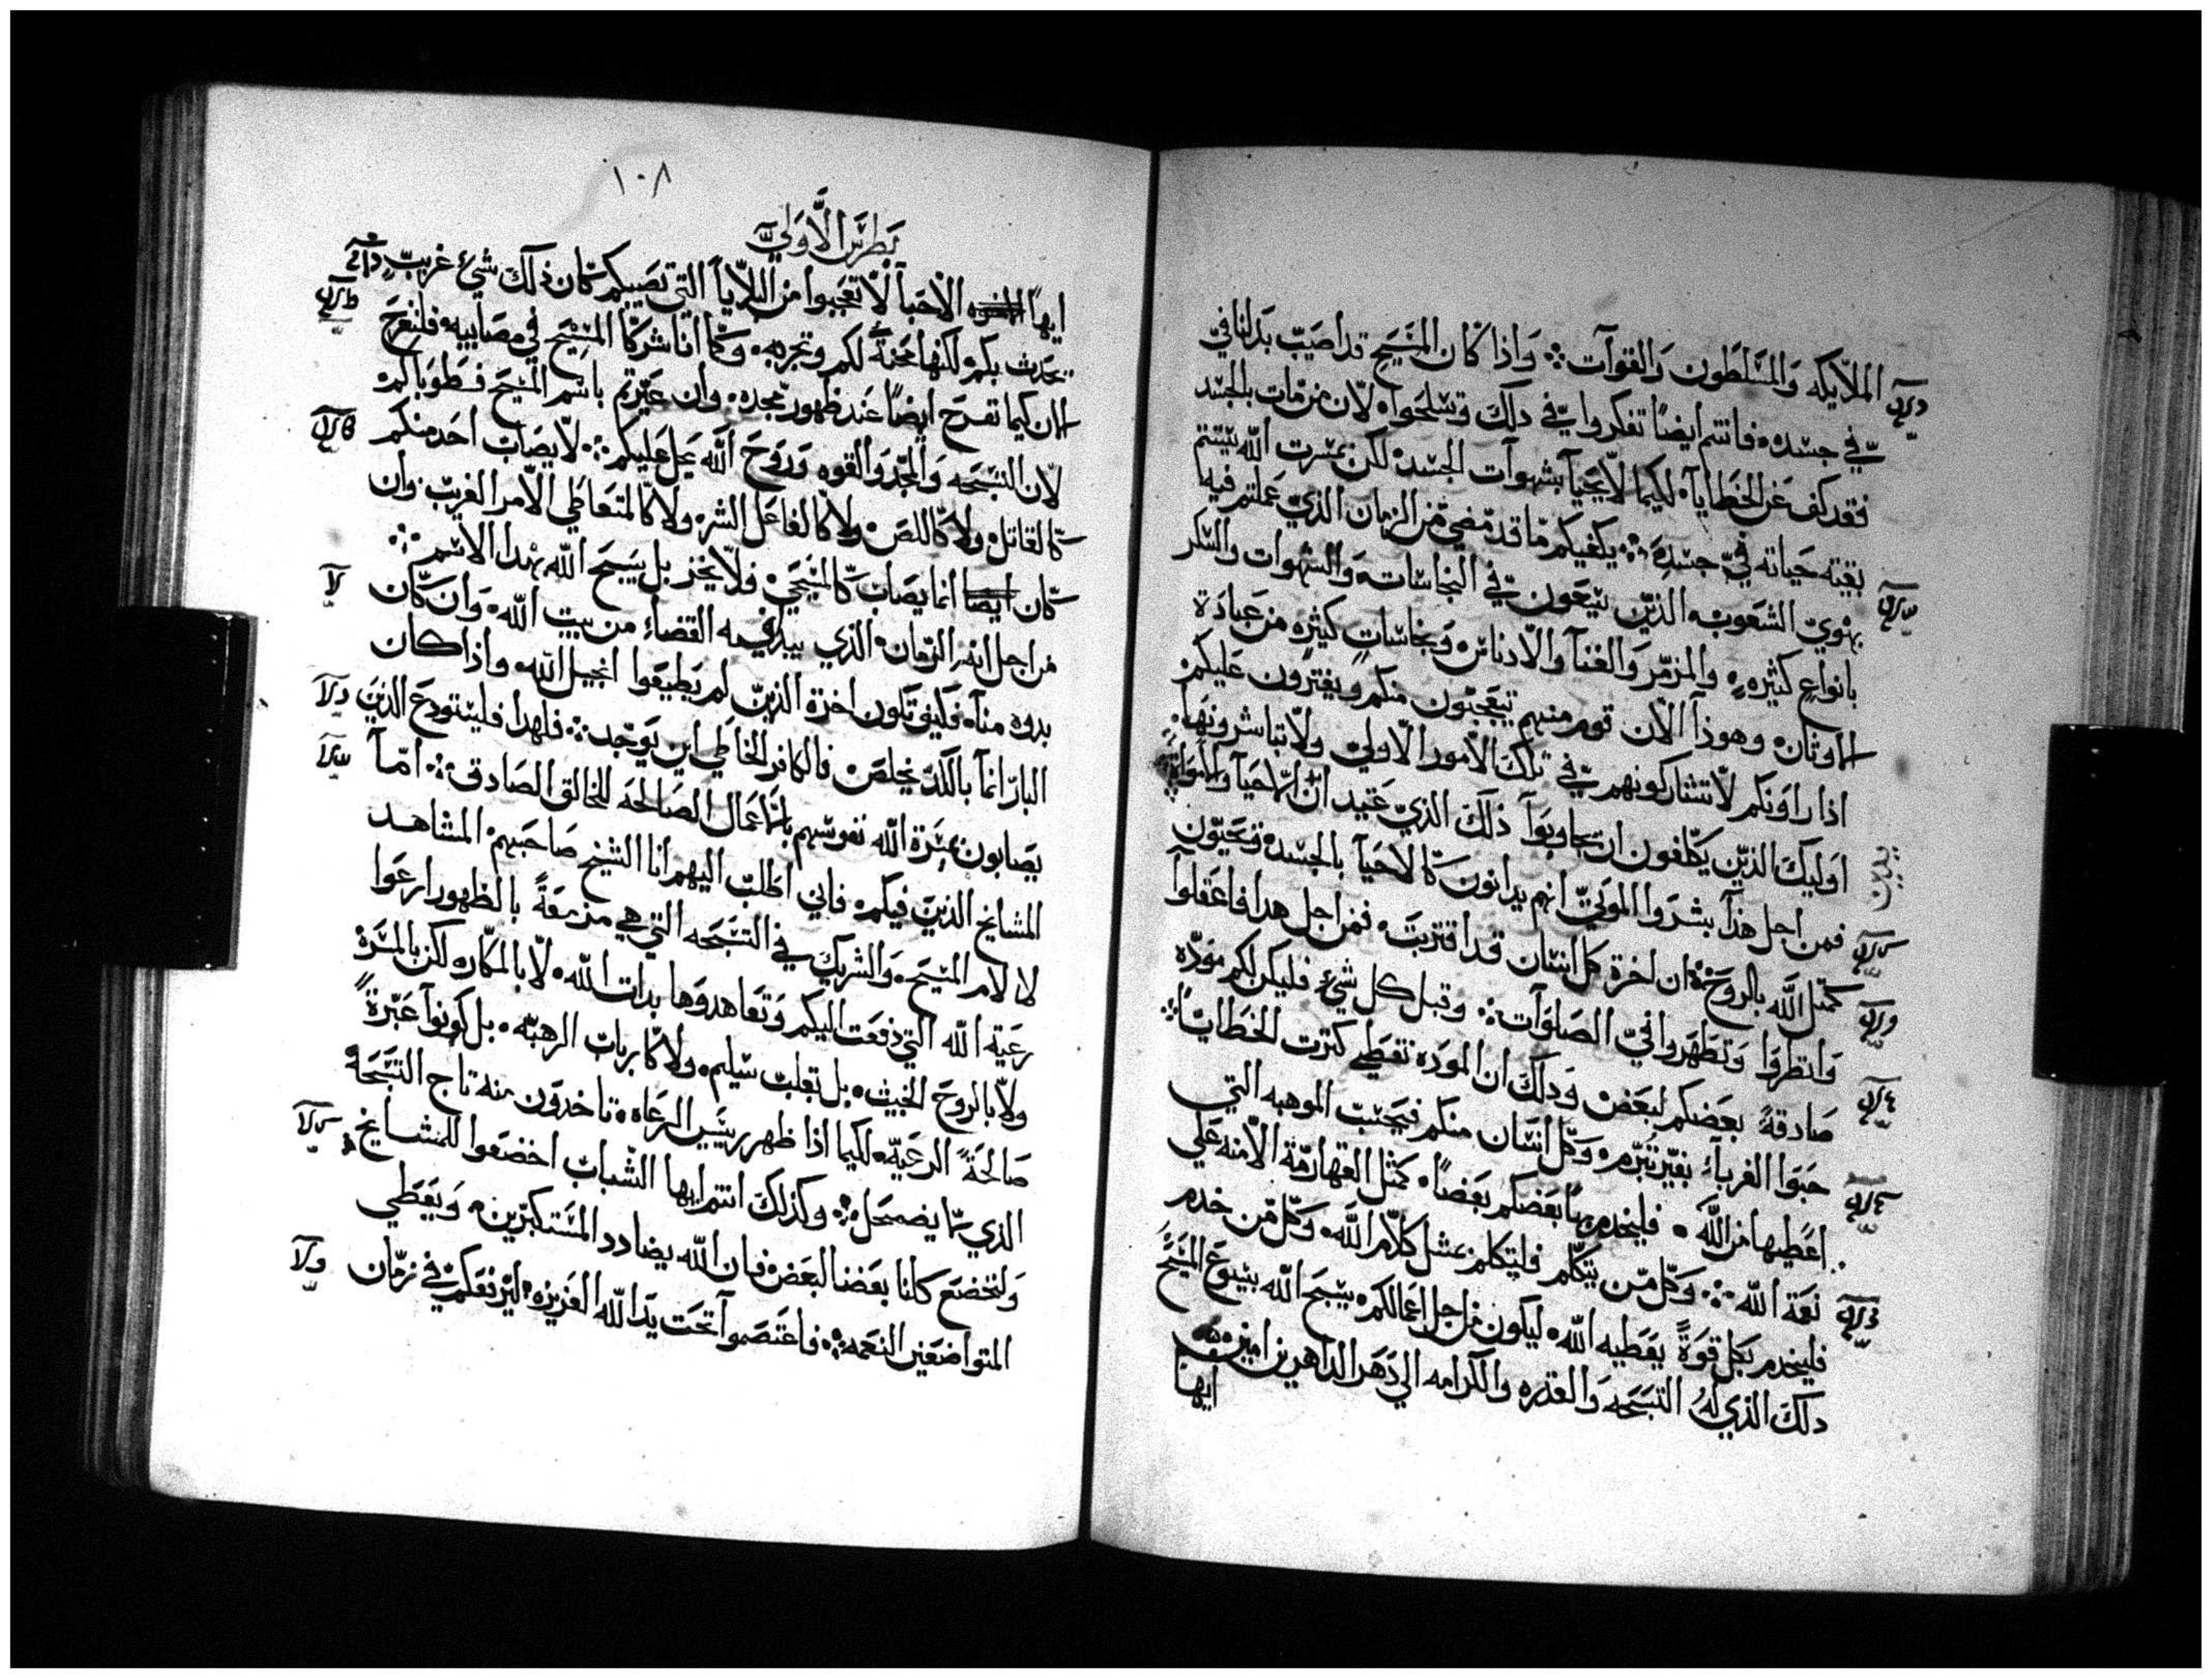 الملايكه والمسلطون والقوآت ؞ واذا كان المسيح قد اصيب بدلنا في
في جسده فانتم ايضًا تفكروا في دلك وتسلحوا لان من مات بالجسد
فقد كف عن الخطايا لكيما لا يحيآ بشهوآت الجسد لكن بمسرت الله يتيتم
بقية حياته في جسده ؞ يكفيكم ما قد مضي من الزمان الذي عملتم فيه
بهوي الشعوب الذين يتيحون في النجاسات والشهوات والسكر
بانواع كثيره والمزمر والغنآ والادناس ونجاسات كثيره من عبادة
الاوثان وهوذآ الان قوم منهم يتعجبون منكم ويفترون عليكم
اذا راونكم لا تشاركونهم في تلك الامور الاولي ولا تباشرونها
اوليك الذين يكلفون ان يجاوبوآ ذلك الذي عتيد ان الاحيآ والاموات
فمن اجل هذآ بشروا الموتي انهم يدانون كالاحيآ بالجسد وتحيون
كمثل الله بالروح ؞ ان اخرة كل انسان قد اقتربت فمن اجل هدا فاعقلوآ
وانتظروا وتطهروا في الصلوآت ؞ وقبل كل شيء فليكن لكم مودّه
صادقةً بعضكم لبعض ودلك ان الموده تغطي كترت الخطايا ؞
حبوا الغرباء بغير تبرم وكل انسان منكم فبحسب الموهبه التي
اعطيها من الله فليخدم بها بعضكم بعضًا كمثل القهارمة الامنه علي
نعمة الله ؞ وكل من يتكلم فليتكلم بمثل كلام الله وكل من خدم
فليخدم بكل قوةً يعطيه الله ليكون من اجل اعمالكم يسبح الله بيسوع المسيح
دلك الذي له التسبحه والقدره والكرامه الي دهر الداهرين امين
ايها
١٠٨
بطرس الاولي
ايها الاحبآ لا تعجبوا من البلايا التي تصيبكم كان ذلك شيء غريب
يحدث بكم لكنها محنةً لكم وتجربه وكما انا شركآ المسيح في مصايبه فلنفرح
الان كيما نفرح ايضًا عند ظهور مجده وان عيرتم باسم المسيح فطوباكم
لان التسبحه والمجد والقوه وروح الله يحل عليكم ؞ لا يصاب احد منكم
كالقاتل ولا كاللص ولا كالفاعل الشر ولا كالمتعاطي الامر الغريب وان
كان ايضا انما يصاب كالمسيحي فلا يخز بل يسبح الله بهدا الاسم ؞
من اجل انه الزمان الذي يبدا فيه القضاء من بيت الله وان كان
بدوه منآ فكيف تكون اخرة الذين لم يطيعوا انجيل الله واذا كان
البار انمآ بالكد يخلص فالكافر الخاطي اين يوجد ؞ فلهدا فليستودع الذين
يصابون بمسرة الله نفوسهم بالاعمال الصالحه للخالق الصادق ؞ امآ
المشايخ الذين فيكم فاني اطلب اليهم انا الشيخ صاحبهم المشاهد
لالام المسيح والشريك في التسبحه التي هي مزمعةً بالظهور ارعوا
رعية الله التي دفعت اليكم وتعاهدوها بدات الله لا بالمكاره لكن بالمسرة
ولا بالروح الخبيث بل بقلب سليم ولا كارباب الرهبه بل كونوآ عبرةً
صالحةً الرعيه لكيما اذا ظهر رييس الرعاه تاخدون منه تاج التسبحه
الذي لا يضمحل ؞ وكذلك انتم ايها الشباب اخضعوا للمشايخ
ولتخضع كلنا بعضنا لبعض فان الله يضادد المستكبرين ويعطي
المتواضعين النعمه ؞ فاعتصموآ تحت يد الله العزيزه ليرفعكم في زمان